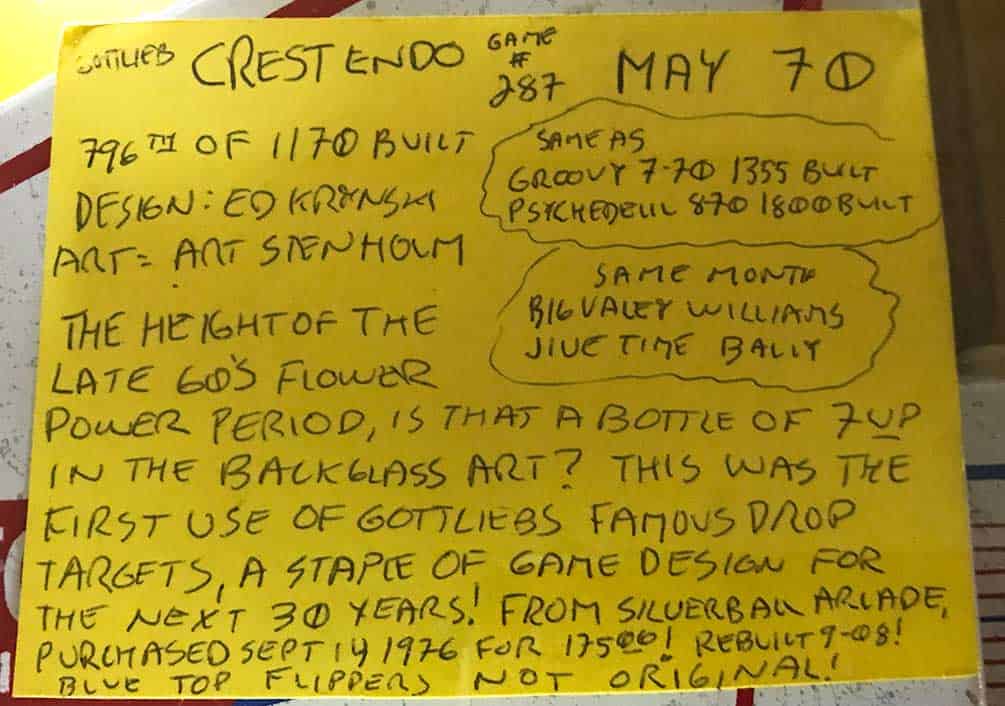 GOTTLIEB CRESTENDO GAME # 287 MAY 70
796TH OF 1170 BUILT
DESIGN: ED KRYNSKI
ART= ART STENHOLM
SAME AS
GROOVY 7-70 1355 BUILT
PSYCHEDELIL 870 1800 BUILT
SAME MONTH
BIG VALEY WILLIAMS
JIVE TIME BALLY
THE HEIGHT OF THE
LATE 60'S FLOWER
POWER PERIOD, IS THAT A BOTTLE OF 7UP
IN THE BACKGLASS ART? THIS WAS THE
FIRST USE OF GOTTLIEBS FAMOUS DROP
TARGETS, A STAPLE OF GAME DESIGN FOR
THE NEXT 30 YEARS! FROM SILVERBALL ARCADE,
PURCHASED SEPT 14 1976 FOR 17500! REBUILT 9-08!
BLUE TOP FLIPPERS NOT ORIGINAL!